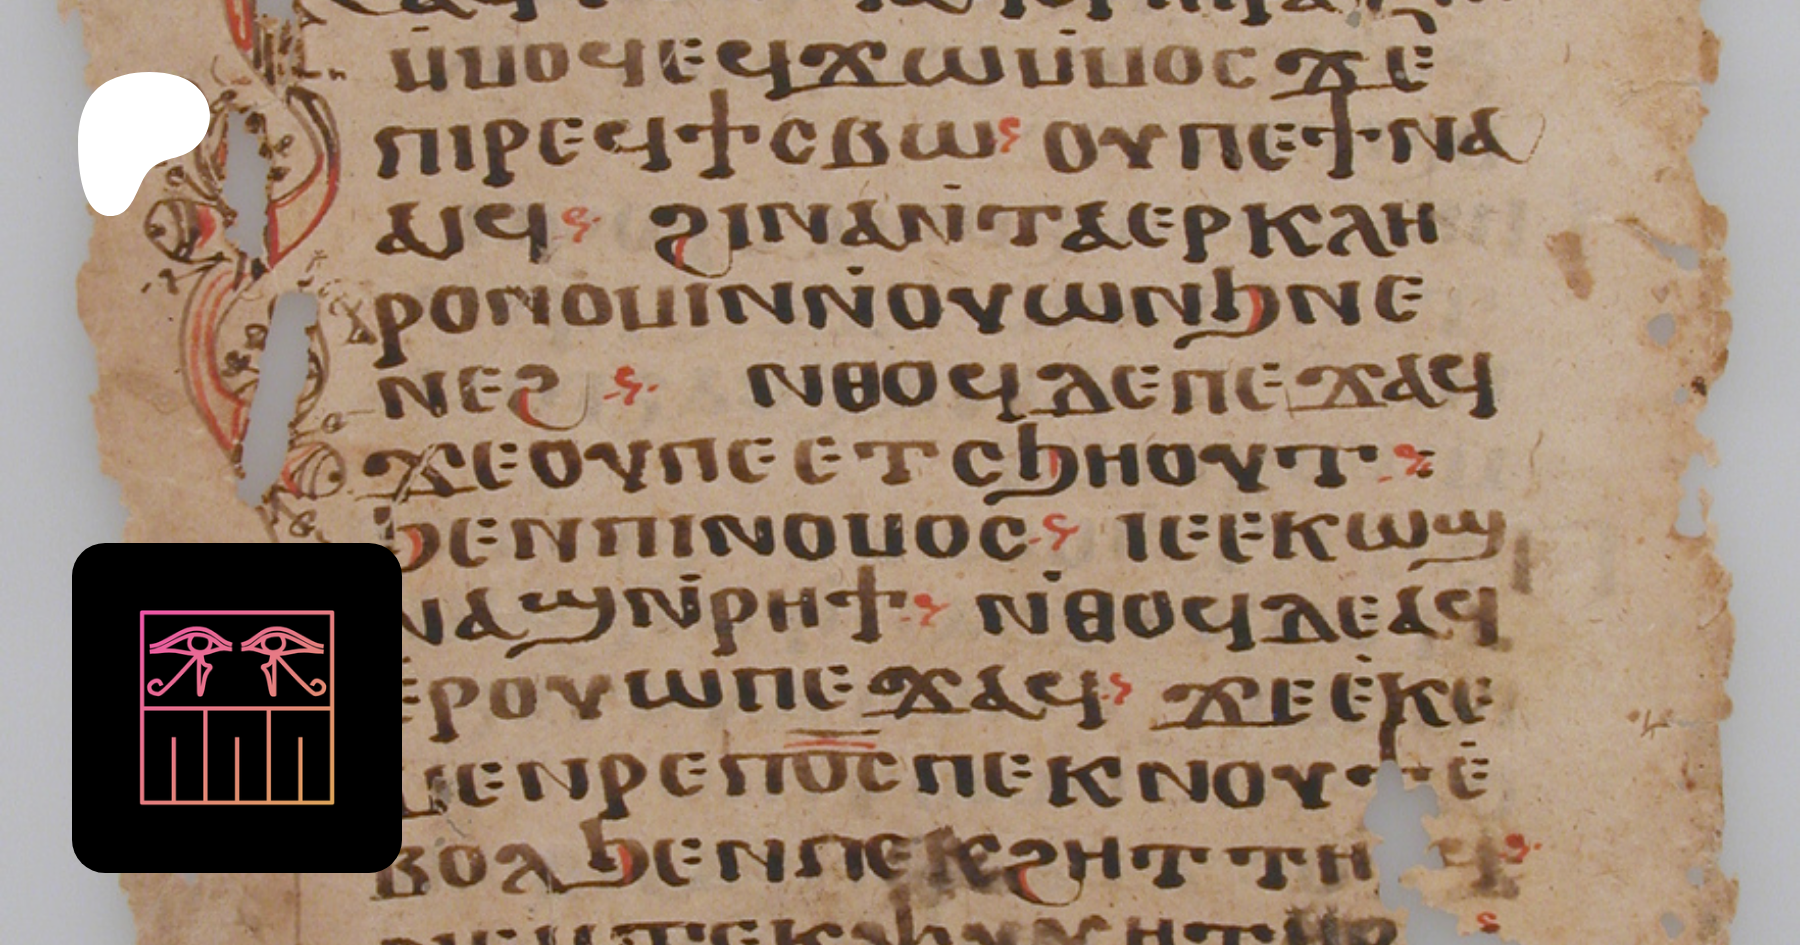 ⲙ̇ⲙⲟϥⲉϥϫⲱⲙ̇ⲙⲟⲥϫⲉ̇
ⲡⲓⲣⲉϥϯⲥⲃⲱ ⲟⲩⲡⲉϯⲛⲁ
ⲁⲓϥ ϩⲓⲛⲁⲛ̇ⲧⲁⲉⲣⲕⲗⲏ
ⲣⲟⲛⲟⲙⲓⲛⲛ̇ⲟⲩⲱⲛϧⲛⲉ
ⲛⲉϩ ⲛⲑⲟϥⲇⲉⲡⲉϫⲁϥ
ϫⲉⲟⲩⲡⲉⲉⲧⲥϧⲏⲟⲩⲧ
ϧⲉⲛⲡⲓⲛⲟⲙⲟⲥ ⲓⲉⲉⲕⲱϣ
ⲛⲁϣⲛ̇ⲣⲏϯ ⲛ̇ⲑⲟϥⲇⲉⲁϥ
ⲉⲣⲟⲩⲱⲡⲉϫⲁϥ ϫⲉⲉ̇ⲕⲉ
ⲙⲉⲛⲣⲉⲡⲟ̅ⲥ̅ⲡⲉⲕⲛⲟⲩϯⲉ̇
ⲃⲟⲗϧⲉⲛⲡⲉⲕϩⲏⲧⲧⲏⲣϥ